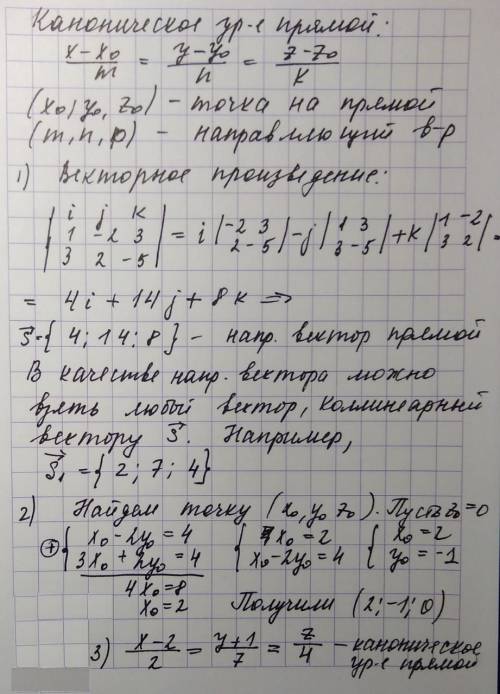 Каноническое ур-е прямой:
x-x₀/m = y-y₀/n = z-z₀/k
(x₀, y₀, z₀) - точка на прямой
(m, n, p) - направляющий в-р
1) Векторное произведение:
|i j k; 1 -2 3; 3 2 -5| = i |-2 3; 2 -5| - j |1 3; 3 -5| + k |1 -2; 3 2| =
= 4i + 14j + 8k ⇒
s⃗={4; 14; 8} - напр. вектор прямой
В качестве напр. вектора можно
взять любой вектор, коллинеарный
вектору s⃗. Например,
s⃗₁ = {2; 7; 4}
2) Найдем точку (x₀, y₀ z₀). Пусть z₀=0
⊕ { x₀ - 2y₀ = 4; 3x₀ + 2y₀ = 4 { x₀ = 2; x₀ - 2y₀ = 4 { x₀ = 2; y₀ = -1
4x₀ = 8
x₀ = 2 Получили (2; -1; 0)
3) x-2/2 = y+1/7 = z/4 - каноническое
ур-е прямой